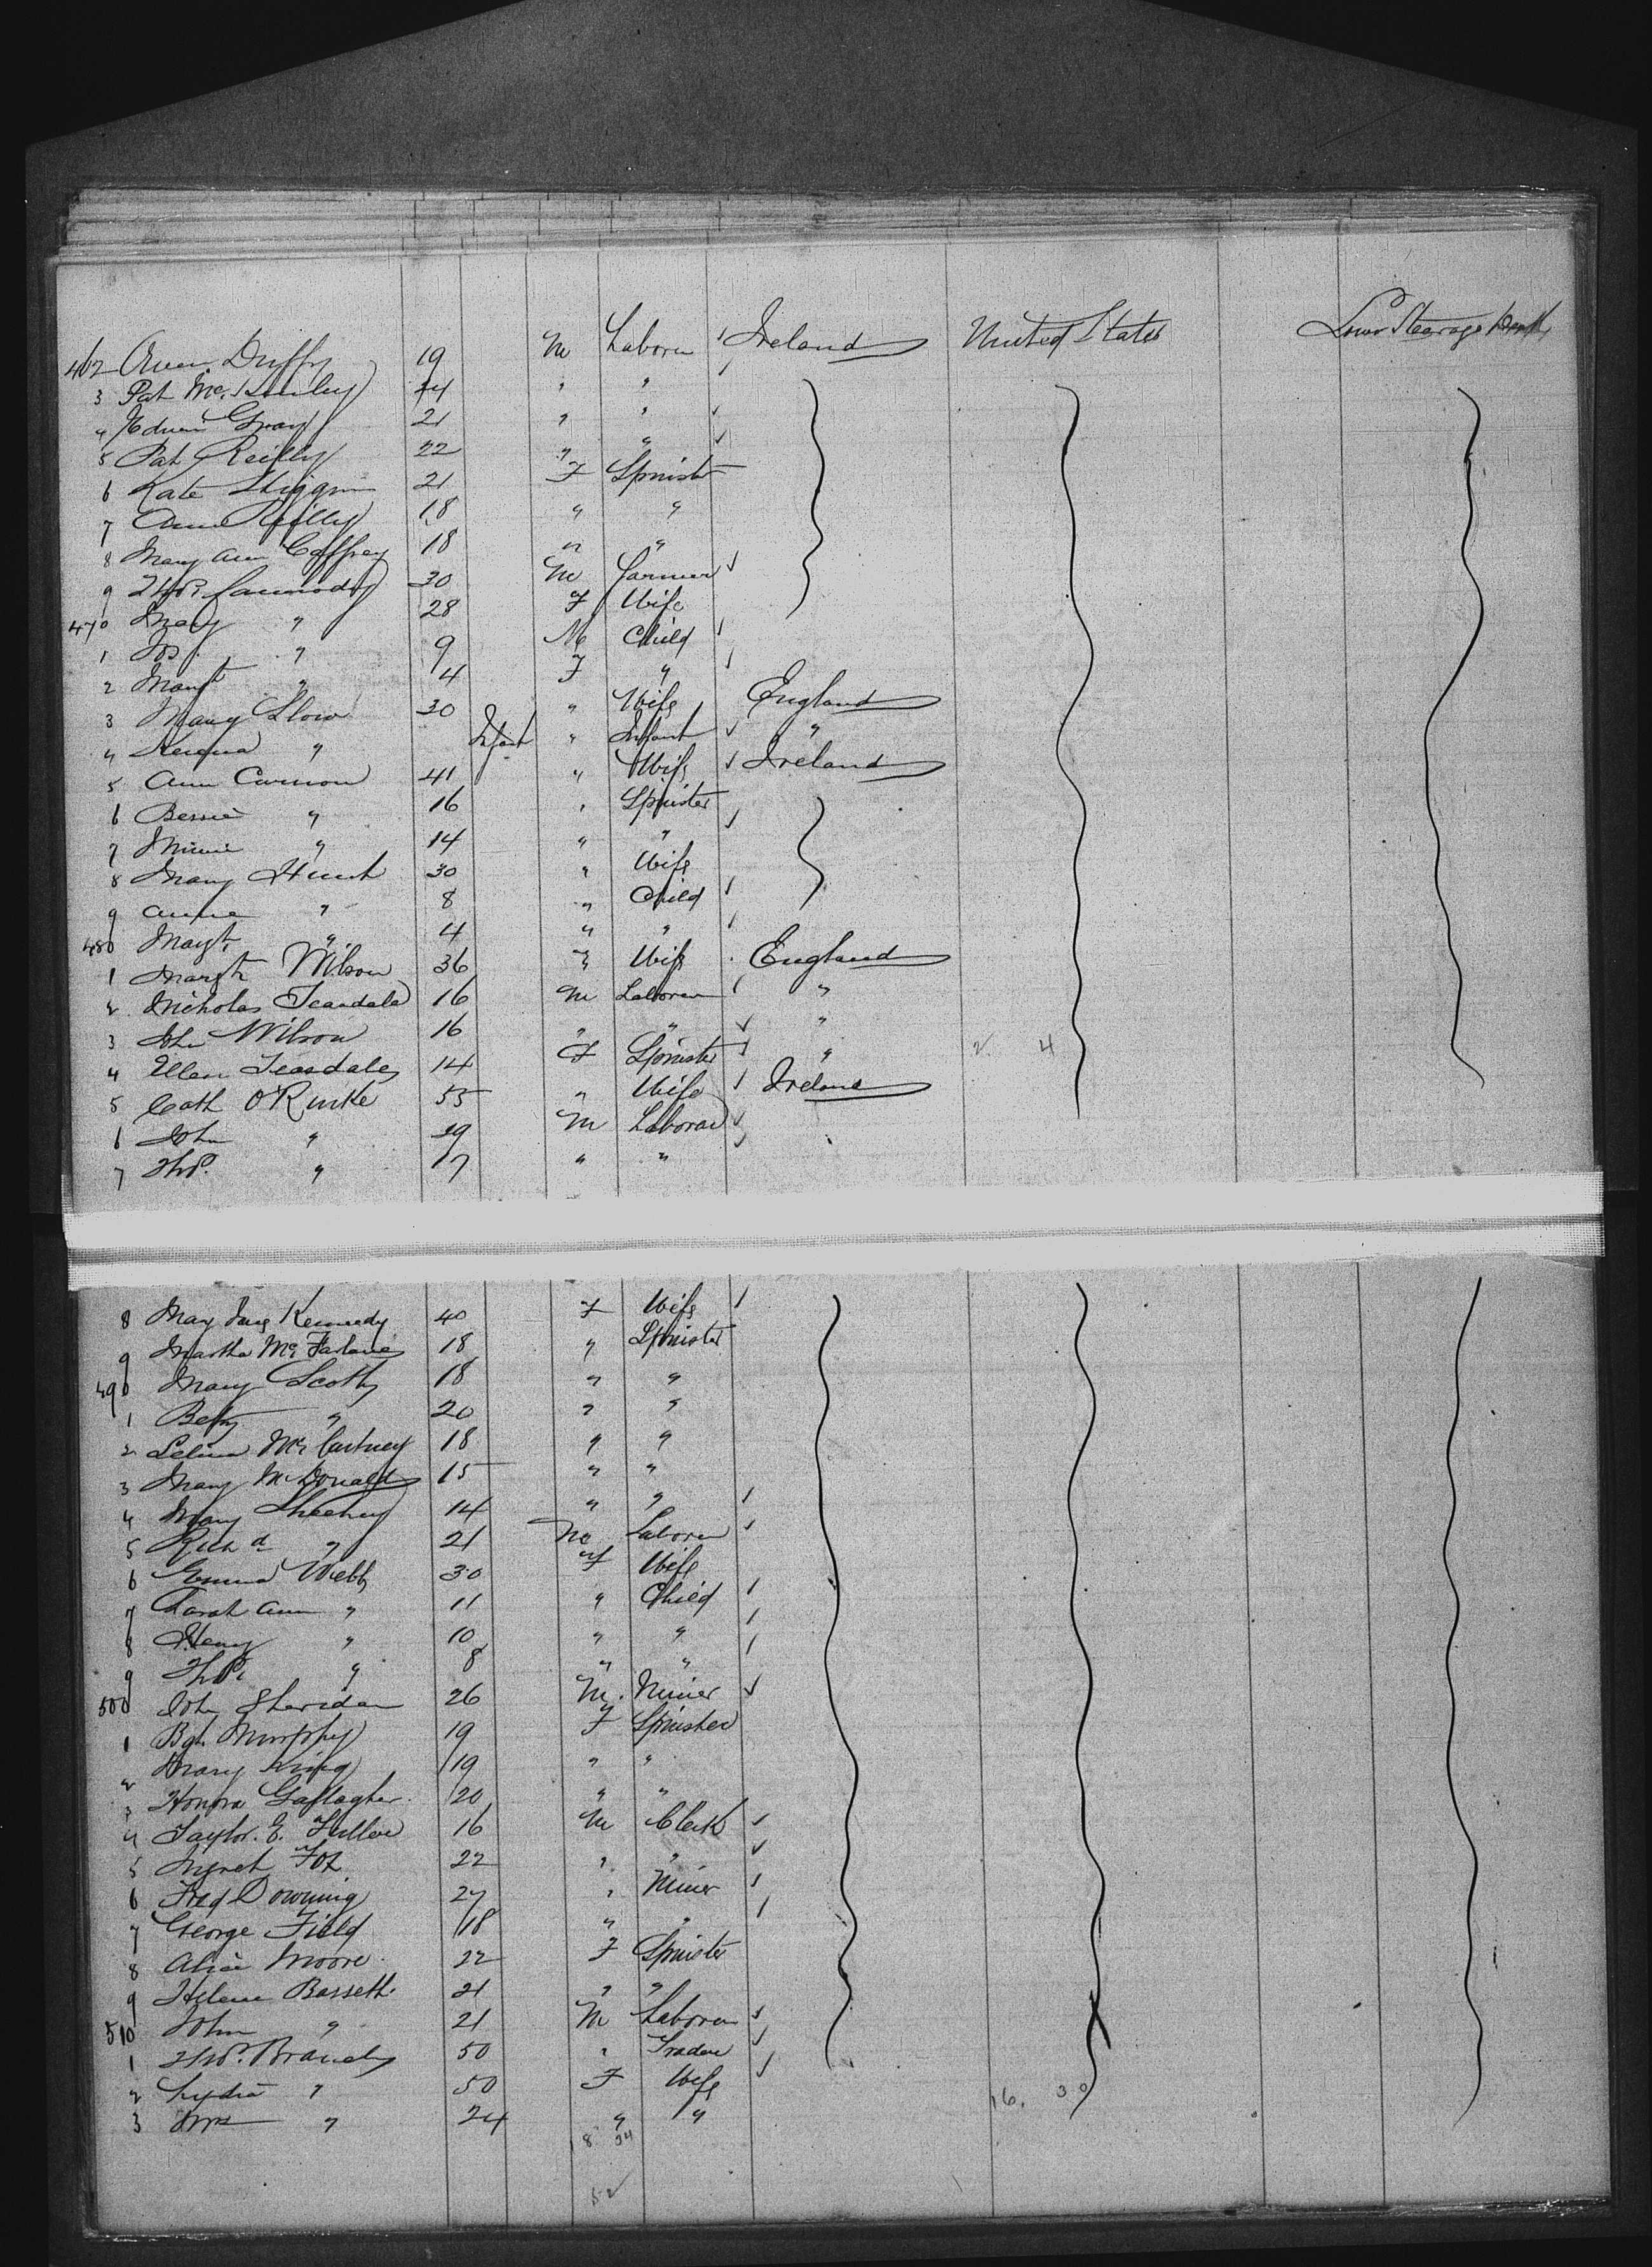 462 Owen Duffy 19 M Laborer Ireland United States Lower Steerage Deck
3 Pat Mc. Kinley 24 " "
4 Edward Gray 21 " "
5 Pat Reilly 22 " "
6 Kate Higgins 21 F Spinster
7 Ann Reilly 18 " "
8 Mary Ann Caffrey 18 " "
9 Thos. Carmody 30 M Farmer
470 Mary " 28 F Wife
1 Jos. " 9 M Child
2 Margt " 4 F "
3 Mary Slow 30 " Wife England
4 " Infant " Infant "
5 Ann Cannon 41 " Wife Ireland
6 Bessie " 16 " Spinster
7 Minnie " 14 " "
8 Mary Hunt 30 " Wife
9 Annie " 8 " Child
480 Margt " 4 " "
1 Margt Wilson 36 " Wife England
2 Nicholas Teasdale 16 M Laborer "
3 John Wilson 16 " " "
4 Ellen Teasdale 14 F Spinster " 2. 4
5 Cath O'Rurke 55 " Wife Ireland
6 John " 29 M Laborer
7 Thos. " 17 " "
8 Mary Jane Kennedy 40 F Wife
9 Martha Mc Farlane 18 " Spinster
490 Mary Scott 18 " "
1 Betsy " 20 " "
2 Selina Mc Cartney 18 " "
3 Mary McDonald 15 " "
4 Mary Sheehey 14 " "
5 Richd " 21 M Laborer
6 Emma Webb 30 F Wife
7 Sarah Ann " 11 " Child
8 Henry " 10 " "
9 Thos. " 8 " "
500 John Sheridan 26 M. Miner
1 Bgt. Murphy 19 F Spinster
2 Mary King 19 " "
3 Honora Gallagher 20 " "
4 Taylor. E. Fuller 16 M Clerk
5 Fox 22 " "
6 Fred Downing 27 " Miner
7 George Field 18 " "
8 Alice Moore 22 F Spinster
9 Helene Bassett 21 " "
510 John " 21 M Laborer
1 Thos. Brandy 50 " Trader
2 Lydia " 50 F Wife 16. 30
3 Mrs " 24 " "
18 34
52